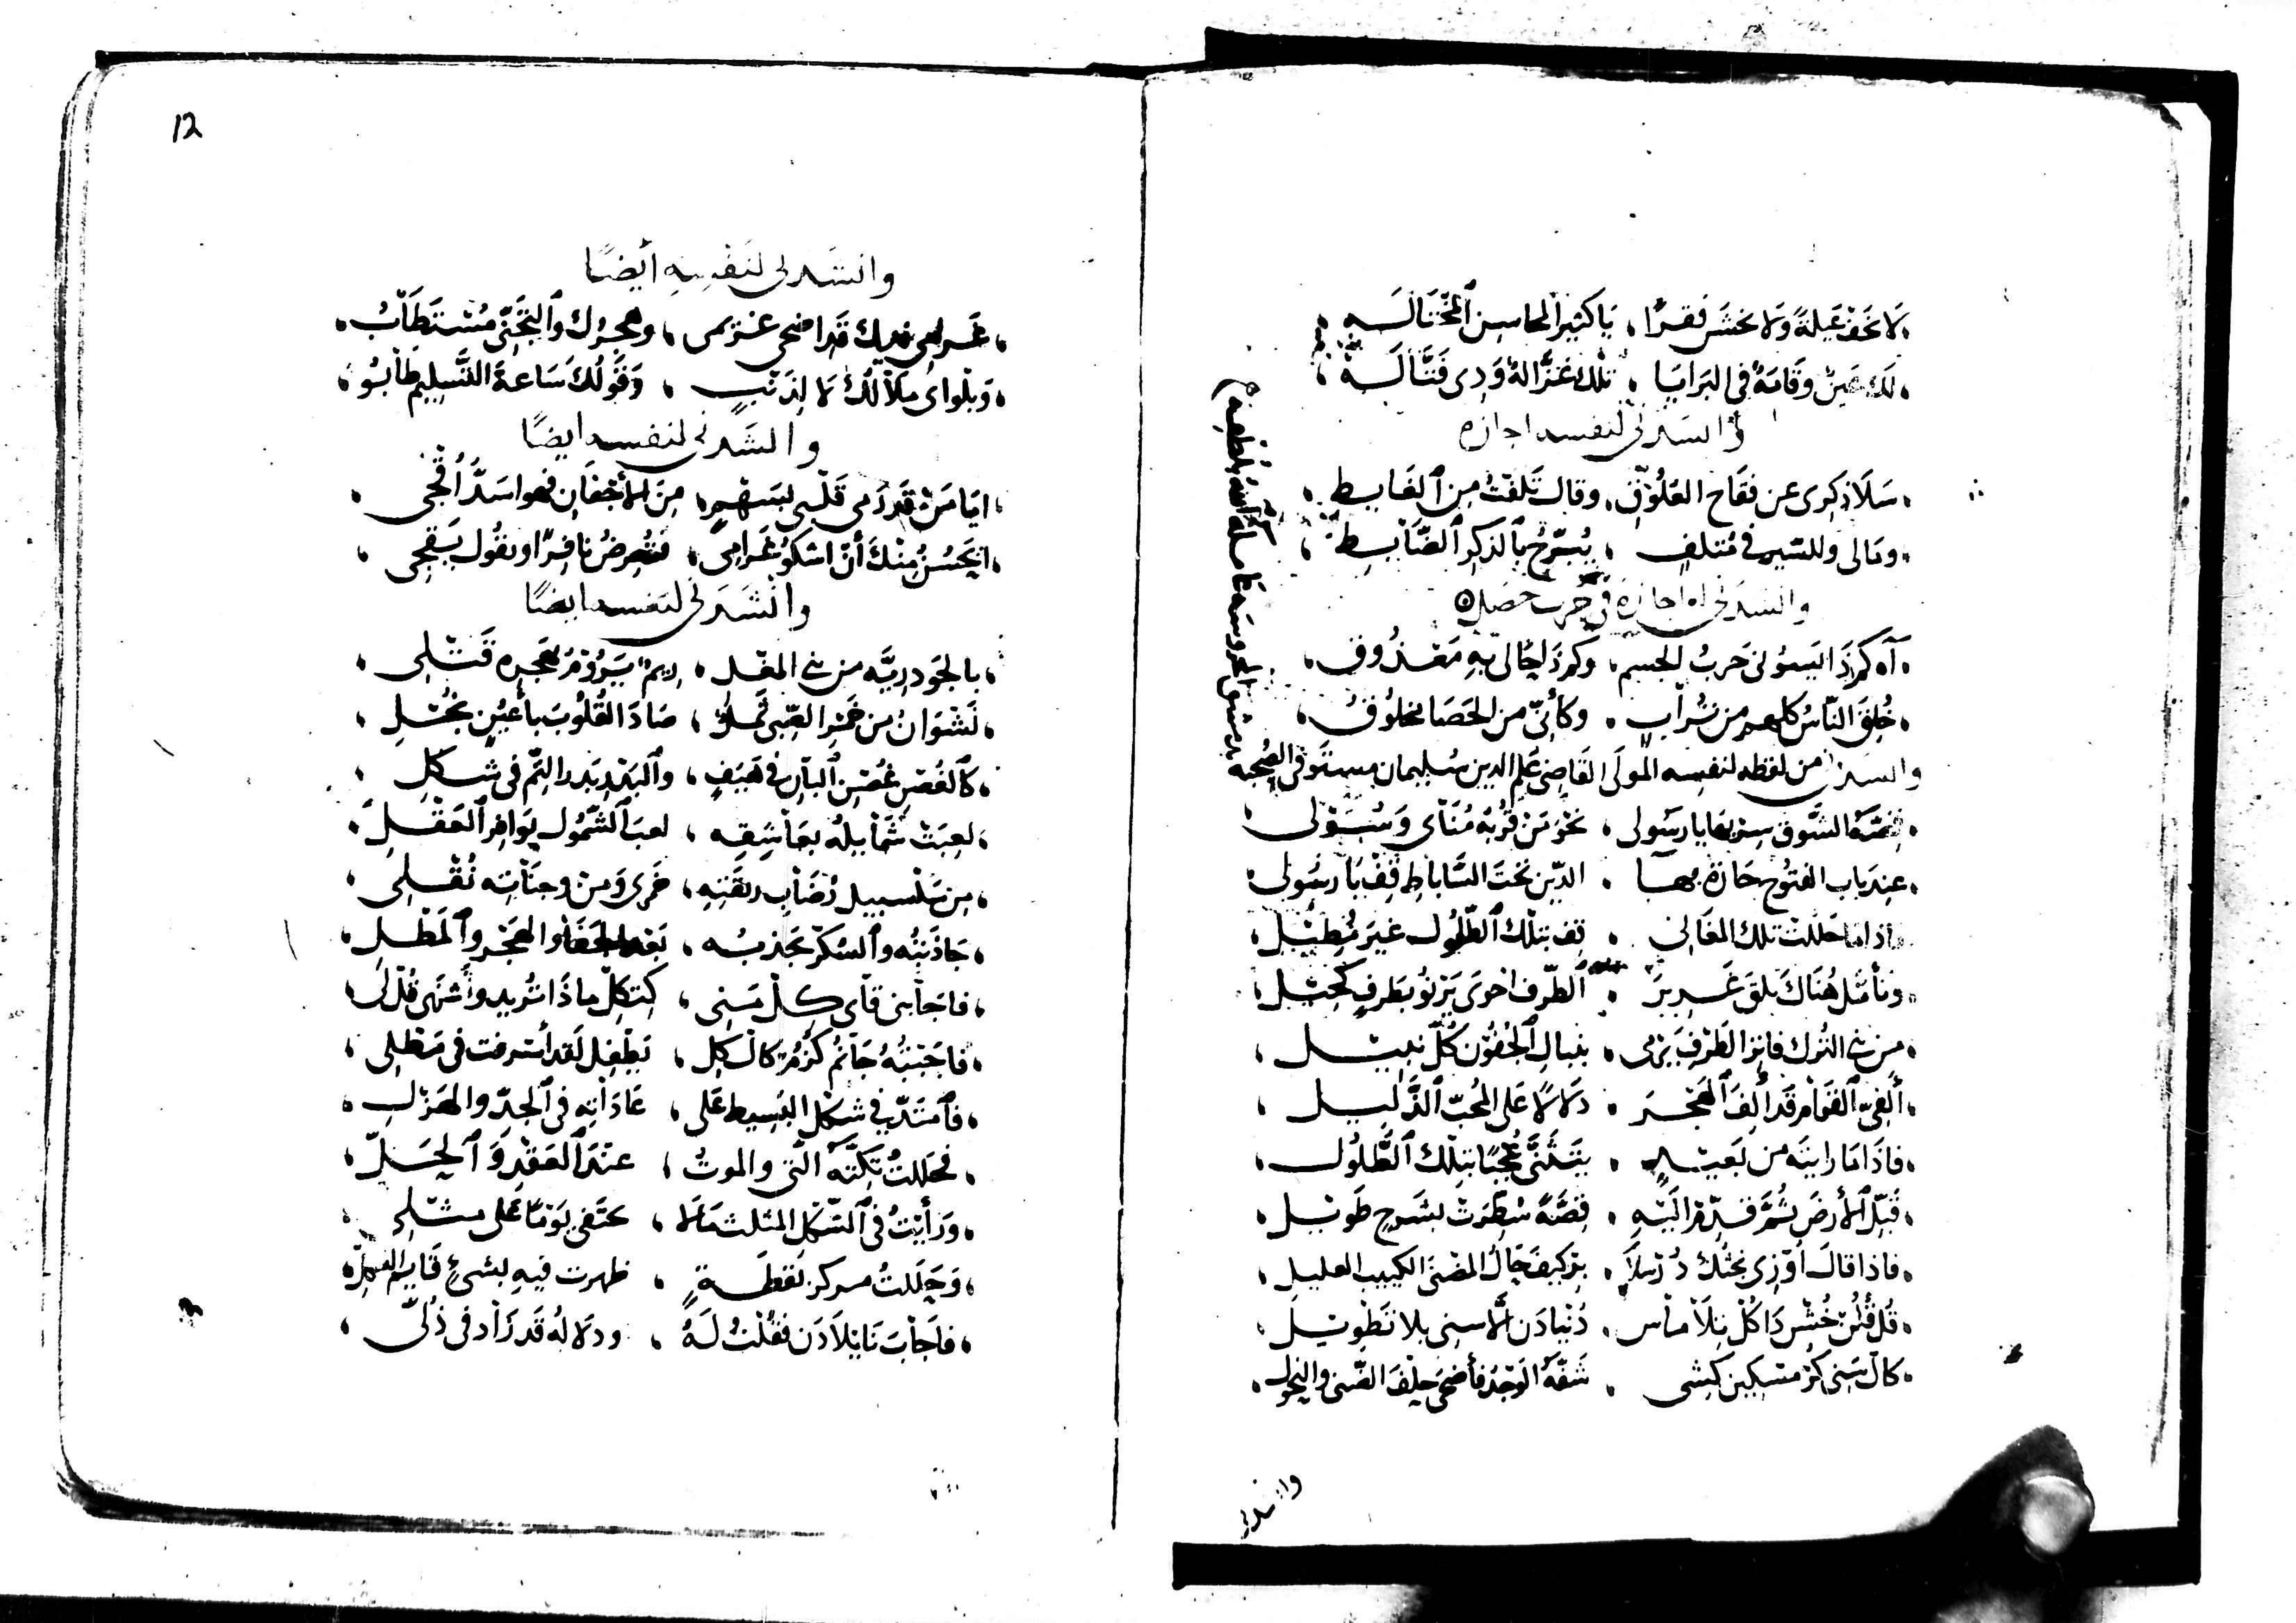 لا تخف عَيلةً ولا تخشَ فقرًا ، يا كثير المحاسن المختاله
لك عين وقامة في البرايا ، تلك غزّالة وذي قتّاله
وانشدني لنفسه اجازه
سلا ذكري عن فقاح العلوق ، وقال تلفت من الغابط
ومالي وللسير في متلف ، يسرح بالذكر الضابط
وانشدني له اجازة في جرب حصل
آه كم ذا يسوني حرب الجسم ، وكم ذا لحالتيه معذوق
خلق الناس كلهم من تراب ، وكأني من الحصا مخلوق
وانشدني من لفظه لنفسه المولى القاضي علم الدين سليمان مستوفي الصحبه
بدمشق المحروسه
قصة الشوق سر بها يا رسولي ، نحو من قربه مناي وسولي
عند باب الفتوح حارة بها الدين تحت الساباط قف يا رسولي
فاذا ما حللت تلك المغاني ، قف بتلك الطلول غير مطيل
وتأمل هناك تلق غرير الطرف احوى يرنو بطرف كحيل
من بني الترك فاتر الطرف يرمي ، بنبال الجفون كل نبيل
ألفيّ القوام قد ألف الهجر ، دلالا على المحب الذليل
فاذا ما رايته من بعيد ، يتثنى عجبًا بتلك الطلول
قبّل الأرض ثم قدّم اليه ، قصة سطرت بشرح طويل
فاذا قال اوزي نجتك درسلا ، بتركيف حال المضنى الكئيب العليل
قل
كال سني كر مسكين كشي ، شفه الوجد فأضحى حلف الضنى والنحول
وانشدني
12
وانشدني لنفسه أيضًا
غرامي فيك قد اضحى غريمي ، وهجرك والتجني مستطاب
وبلواي ملالك لا لذنب ، وقولك ساعة التسليم طابو
وانشدني لنفسه ايضًا
ايا من قد رمى قلبي بسهم ، من الأجفان فهو اسدّ أقجي
ايحسن منك أن اشكو غرامي ، فتعرض نافرًا وتقول يقجي
وانشدني لنفسه ايضًا
بالجودريّه من بني المغل ، ريم يروم بهجره قتلي
نشوان من خمر الصبى ثمل ، صاد القلوب بأعين نجل
كالغصن غصن البان في هيف ، والبدر بدر التم في شكل
لعبت شمايله بعاشقه ، لعب الشمول بوافر العقل
من سلسبيل رضاب ريقته ، خمري ومن وجناته نقلي
جاذبته والسكر يجذبه ، بعد الجفا والهجر والمطل
فاجابني قاي كل سني ، كتكل ماذا تريد وأشتهى قل لي
فاجبته جانم كزم كال كل ، بطغل لقد أسرفت في مطلي
فامتد في شكل البسيط على ، عاداته في الجد والهزل
فحللت تكته التي والموت ، عند العقد والحل
ورأيت في الشكل المثلث مالا ، يختفي يومًا على مثلي
وجعلت مركز نقطة ، ظهرت فيه بشيء قايم
فاجاب نا نيلادن فقلت له ، ودلاله قد زاد في ذلّي